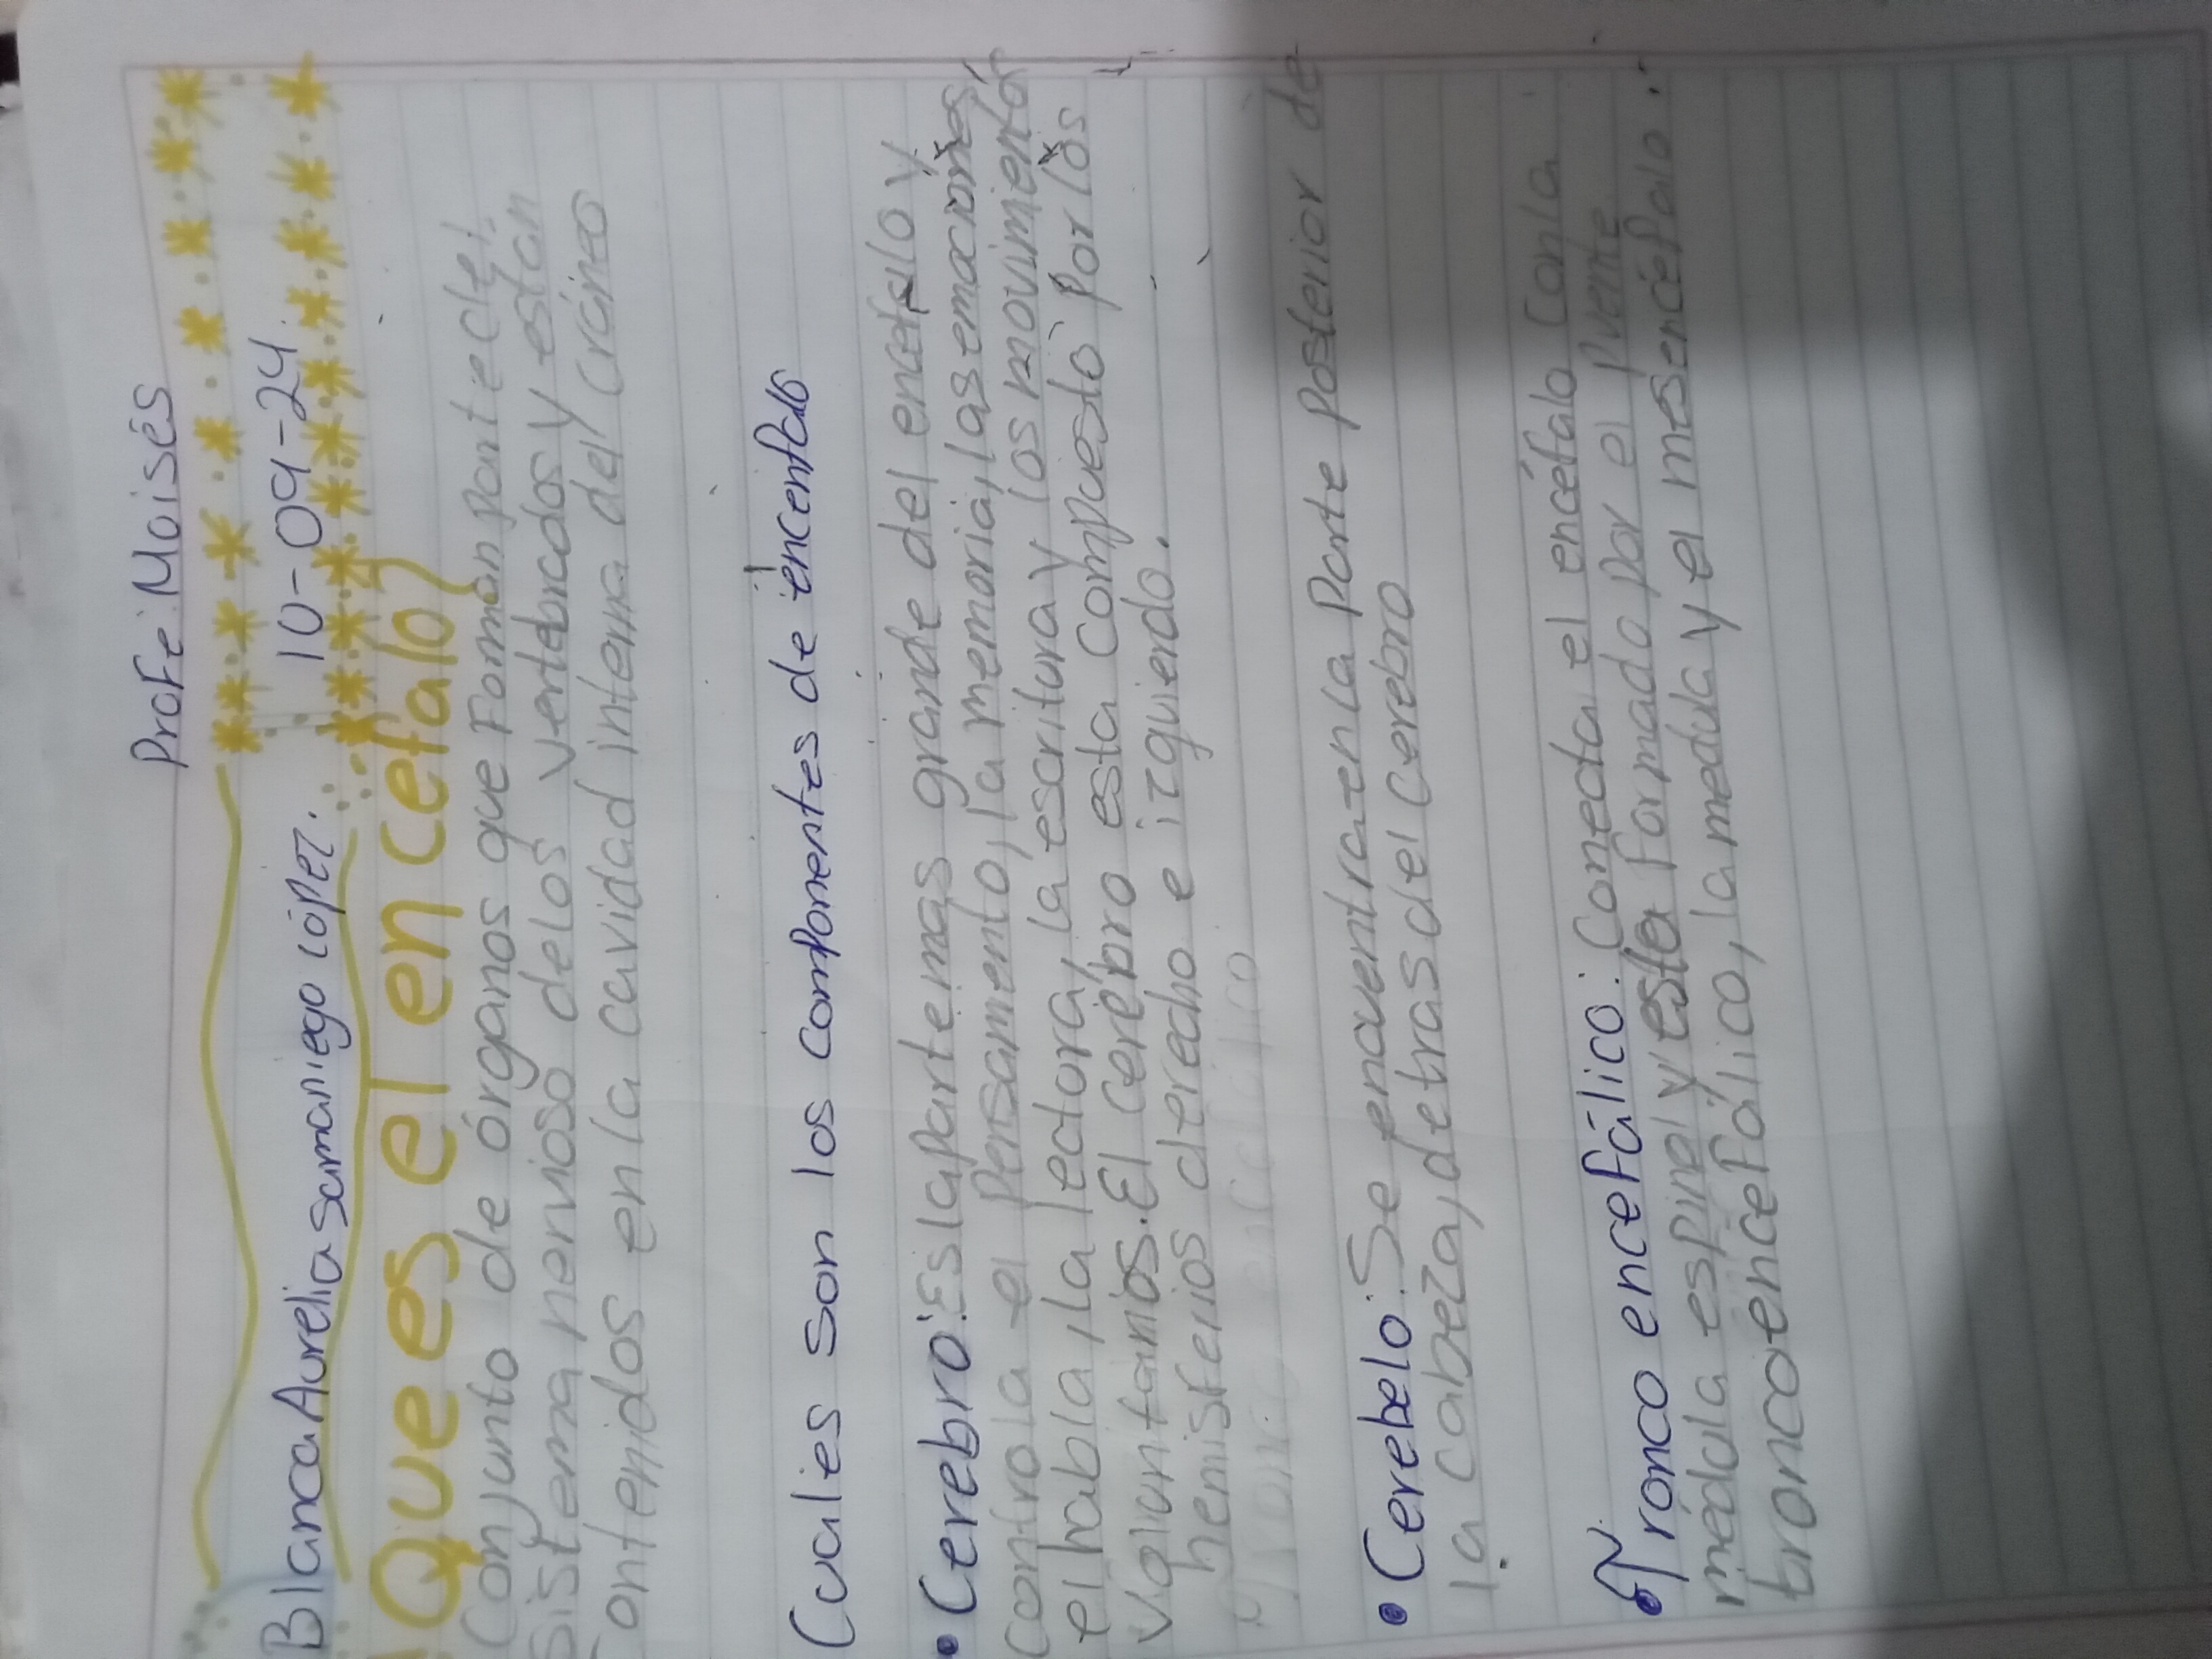 Profe: Moisés
Blanca Aurelia samaniego lópez. 10-09-24
Que es el encefalo?
Conjunto de órganos que Forman parte del
sistema nervioso delos vertebrados y estan
Contenidos en la cavidad interna del cráneo
Cuales son los componentes de encenfalo
• Cerebro: Es la parte mas grande del encefalo y
controla el Pensamiento, la memoria, las emociones,
el habla, la lectora, la escritura y los movimientos
Voluntarios. El cerebro esta compuesto por los
hemisferios derecho e izquierdo.
• Cerebelo: Se encuentra en la parte Posterior de
la cabeza, detras del cerebro
• Tronco encefálico: Conecta el encéfalo con la
médula espinal y esta formado por el puente
troncoencefálico, la medula y el mesencéfalo.